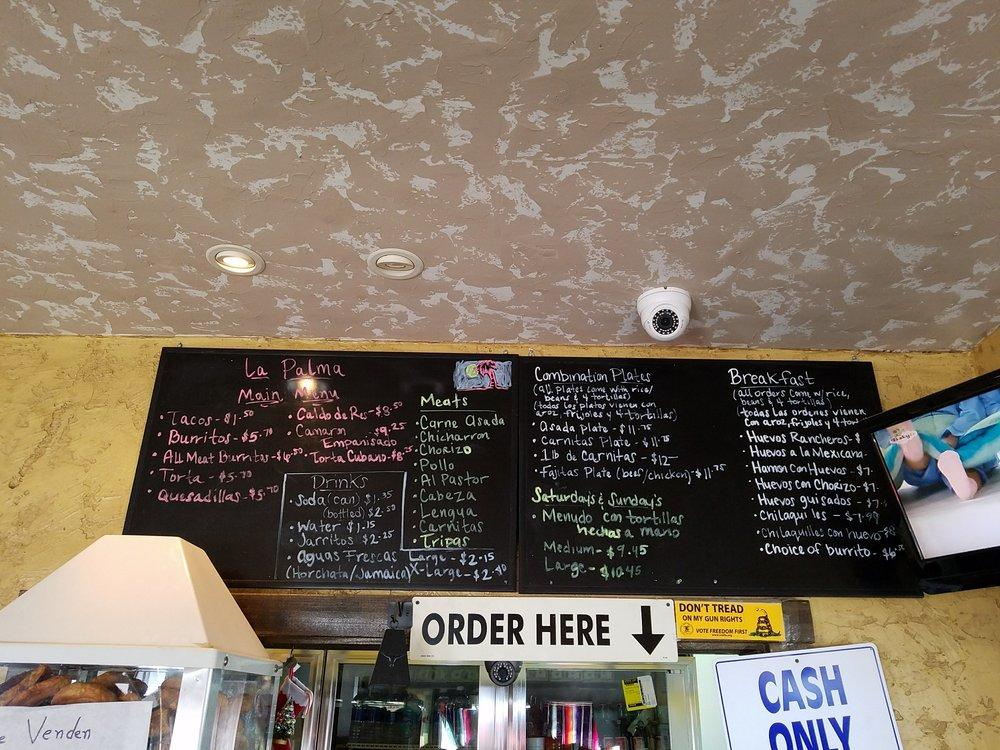 La Palma
Main Menu
• Tacos - $1.50
• Burritos - $5.70
• All Meat Burritos - $6.50
• Torta - $5.70
• Quesadillas - $5.70
• Caldo de Res - $8.50
• Camaron $9.25
Empanisado
• Torta Cubano - $8.
Drinks
• Soda (can) $1.35
(bottled) $2.50
• Water $1.15
• Jarritos $2.25
• Aguas Frescas Large - $2.15
(Horchata/Jamaica) X-Large - $2.40
Meats
• Carne Asada
• Chicharron
• Chorizo
• Pollo
• Al Pastor
• Cabeza
• Lengua
• Carnitas
• Tripas
Combination Plates
(all plates come with rice/
beans & 4 tortillas)
(todos los platos vienen con
aroz, frijoles y 4 tortillas)
• Asada Plate - $11.75
• Carnitas Plate - $11.75
• 1 lb de Carnitas - $12
• Fajitas Plate (beef/chicken) - $11.75
Saturdays & Sundays
• Menudo con tortillas
hechas a mano
Medium - $9.45
Large - $10.45
Breakfast
(all orders come w/rice,
beans & 4 tortillas)
(todas las ordenes vienen
con aroz, frijoles y 4
• Huevos Rancheros - $
• Huevos a la Mexicana -
• Hamon con Huevos - $7.
• Huevos con Chorizo - $7.
• Huevos guisados - $7.
• Chilaquiles - $7.99
• Chilaquilles con huevo $8
• Choice of burrito - $6.
ORDER HERE
DON'T TREAD
ON MY GUN RIGHTS
VOTE FREEDOM FIRST
CASH
ONLY
Venden